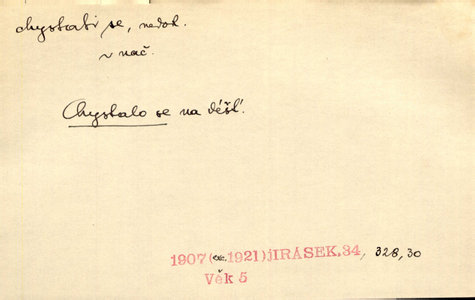 chystati se, nedok.
v nač.
Chystalo se na déšť.
1907 (ok. 1921) JIRÁSEK. 34, 328, 30
Věk 5